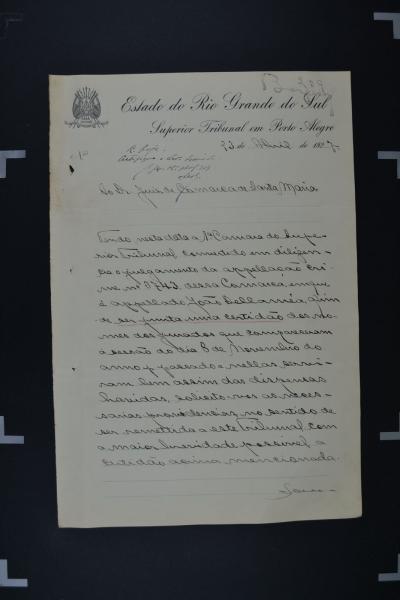 Estado do Rio Grande do Sul
Superior Tribunal em Porto Alegre
de Abril de 1927.
Ao Dr. Juiz da Comarca de Santa Maria
Tendo nesta data a 1ª Camara do Supe-
rior Tribunal convertido em diligen-
cia o julgamento da appellação cri-
me nº dessa Comarca, em que
é appellado João a fim
de ser junta uma certidão dos no-
mes dos jurados que compareceram
á sessão do dia 8 de Novembro do
anno p. passado e nella servi-
ram bem assim das dispensas
havidas, solicito-vos as neces-
sarias providencias no sentido de
ser remettida a este Tribunal com
a maior brevidade possivel a
certidão acima mencionada.